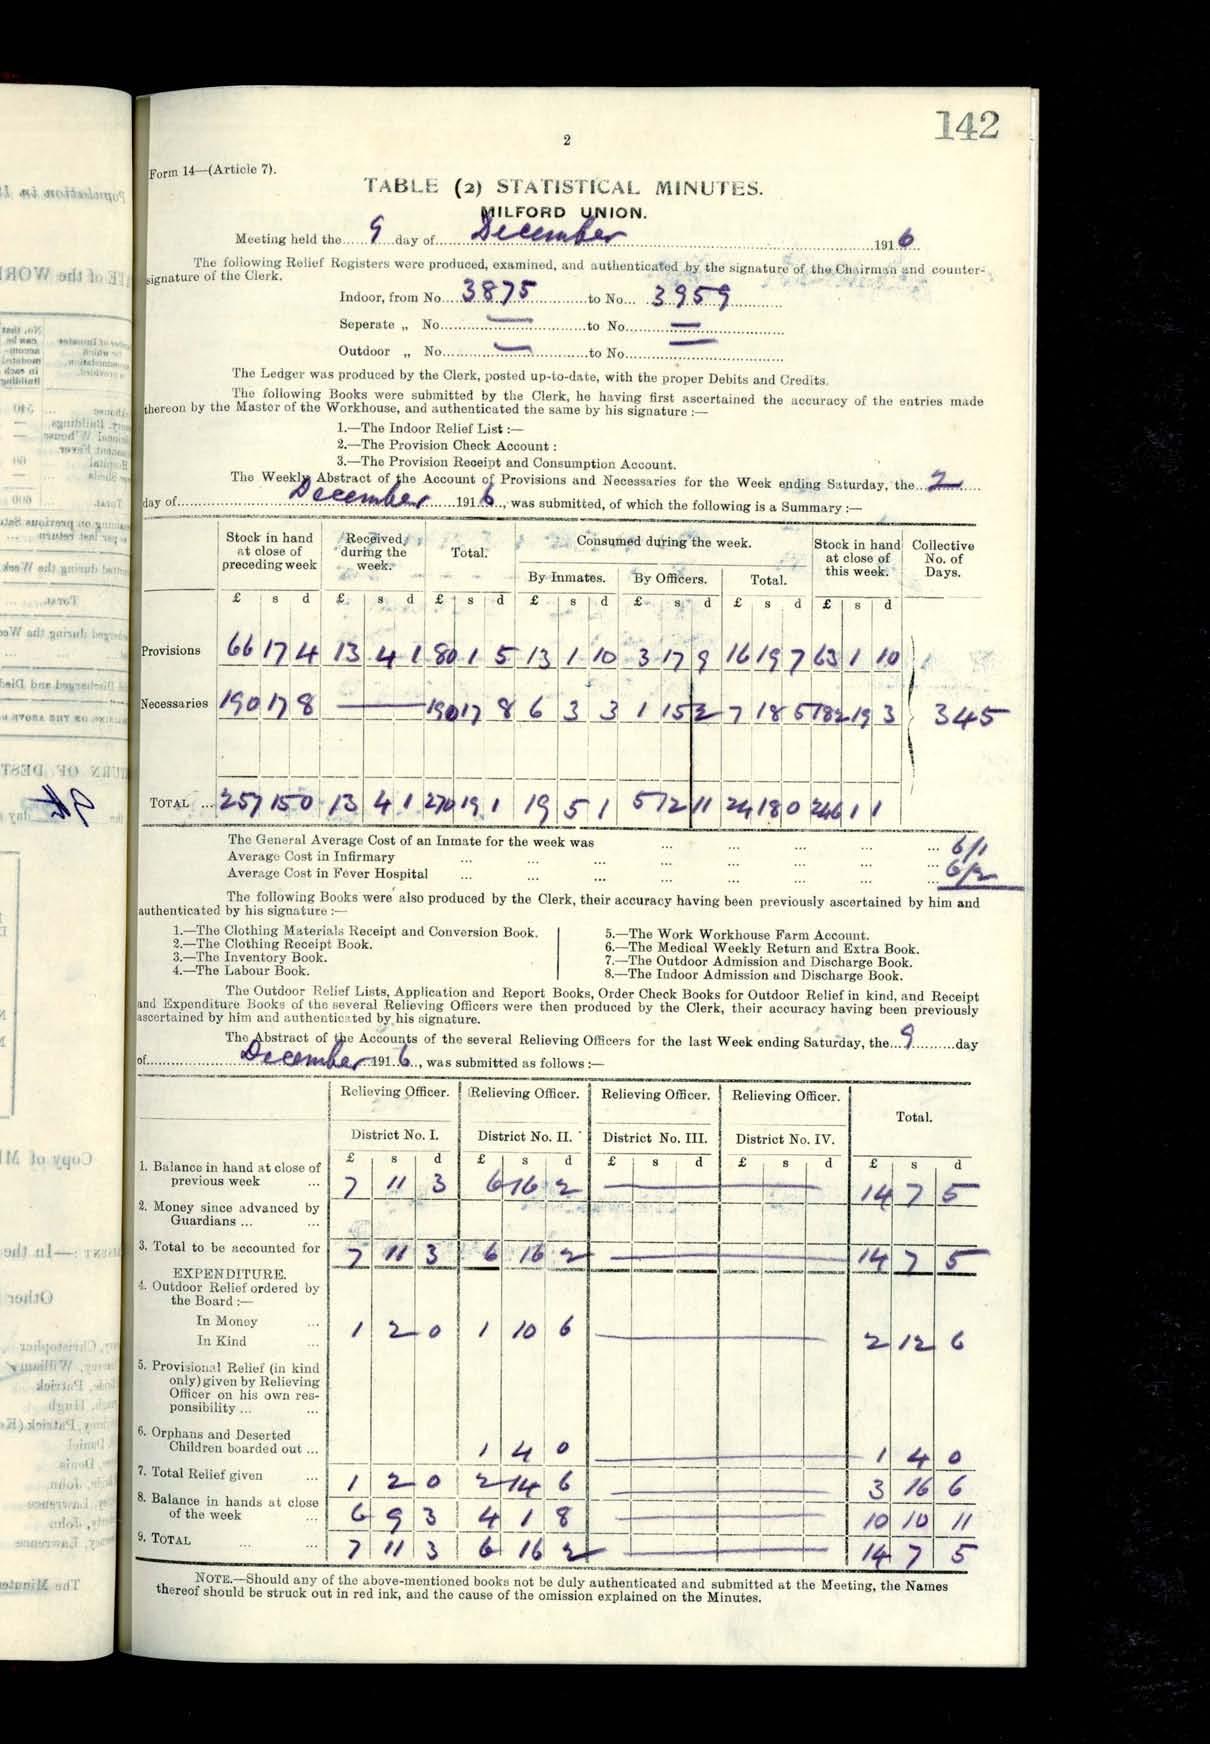 142
2
Form 14—(Article 7).
TABLE (2) STATISTICAL MINUTES.
MILFORD UNION.
Meeting held the 9 day of December 1916
The following Relief Registers were produced, examined, and authenticated by the signature of the Chairman and counter-
signature of the Clerk.
Indoor, from No. 3875 to No. 3959
Seperate „ No. — to No. —
Outdoor „ No. — to No. —
The Ledger was produced by the Clerk, posted up-to-date, with the proper Debits and Credits.
The following Books were submitted by the Clerk, he having first ascertained the accuracy of the entries made
thereon by the Master of the Workhouse, and authenticated the same by his signature :—
1.—The Indoor Relief List :—
2.—The Provision Check Account :
3.—The Provision Receipt and Consumption Account.
The Weekly Abstract of the Account of Provisions and Necessaries for the Week ending Saturday, the 2
day of December 1916, was submitted, of which the following is a Summary :—
Stock in hand at close of preceding week | Received during the week. | Total. | Consumed during the week. | Stock in hand at close of this week. | Collective No. of Days.
By Inmates. | By Officers. | Total.
£ s d £ s d £ s d £ s d £ s d £ s d £ s d
Provisions 66 17 4 13 4 1 80 1 5 13 1 10 3 17 9 16 19 7 63 1 10
Necessaries 190 17 8 — 190 17 8 6 3 3 1 15 2 7 18 5 182 19 3 345
TOTAL ... 257 15 0 13 4 1 270 19 1 19 5 1 5 12 11 24 18 0 246 1 1
The General Average Cost of an Inmate for the week was ... ... ... ... ... 6/1
Average Cost in Infirmary ... ... ... ... ... ... ... ... 6/2
Average Cost in Fever Hospital ... ... ... ... ... ... ... ...
The following Books were also produced by the Clerk, their accuracy having been previously ascertained by him and
authenticated by his signature :—
1.—The Clothing Materials Receipt and Conversion Book.
2.—The Clothing Receipt Book.
3.—The Inventory Book.
4.—The Labour Book.
5.—The Work Workhouse Farm Account.
6.—The Medical Weekly Return and Extra Book.
7.—The Outdoor Admission and Discharge Book.
8.—The Indoor Admission and Discharge Book.
The Outdoor Relief Lists, Application and Report Books, Order Check Books for Outdoor Relief in kind, and Receipt
and Expenditure Books of the several Relieving Officers were then produced by the Clerk, their accuracy having been previously
ascertained by him and authenticated by his signature.
The Abstract of the Accounts of the several Relieving Officers for the last Week ending Saturday, the 9 day
of December 1916, was submitted as follows :—
Relieving Officer. Relieving Officer. Relieving Officer. Relieving Officer. Total.
District No. I. District No. II. District No. III. District No. IV.
£ s d £ s d £ s d £ s d £ s d
1. Balance in hand at close of
previous week ... 7 11 3 6 16 2 — 14 7 5
2. Money since advanced by
Guardians ... ...
3. Total to be accounted for 7 11 3 6 16 2 — 14 7 5
EXPENDITURE.
4. Outdoor Relief ordered by
the Board :—
In Money ... 1 2 0 1 10 6 — 2 12 6
In Kind ...
5. Provisional Relief (in kind
only) given by Relieving
Officer on his own res-
ponsibility ... ...
6. Orphans and Deserted
Children boarded out ... 1 4 0 — 1 4 0
7. Total Relief given ... 1 2 0 2 14 6 — 3 16 6
8. Balance in hands at close
of the week ... 6 9 3 4 1 8 — 10 10 11
9. TOTAL ... ... 7 11 3 6 16 2 — 14 7 5
NOTE.—Should any of the above-mentioned books not be duly authenticated and submitted at the Meeting, the Names
thereof should be struck out in red ink, and the cause of the omission explained on the Minutes.